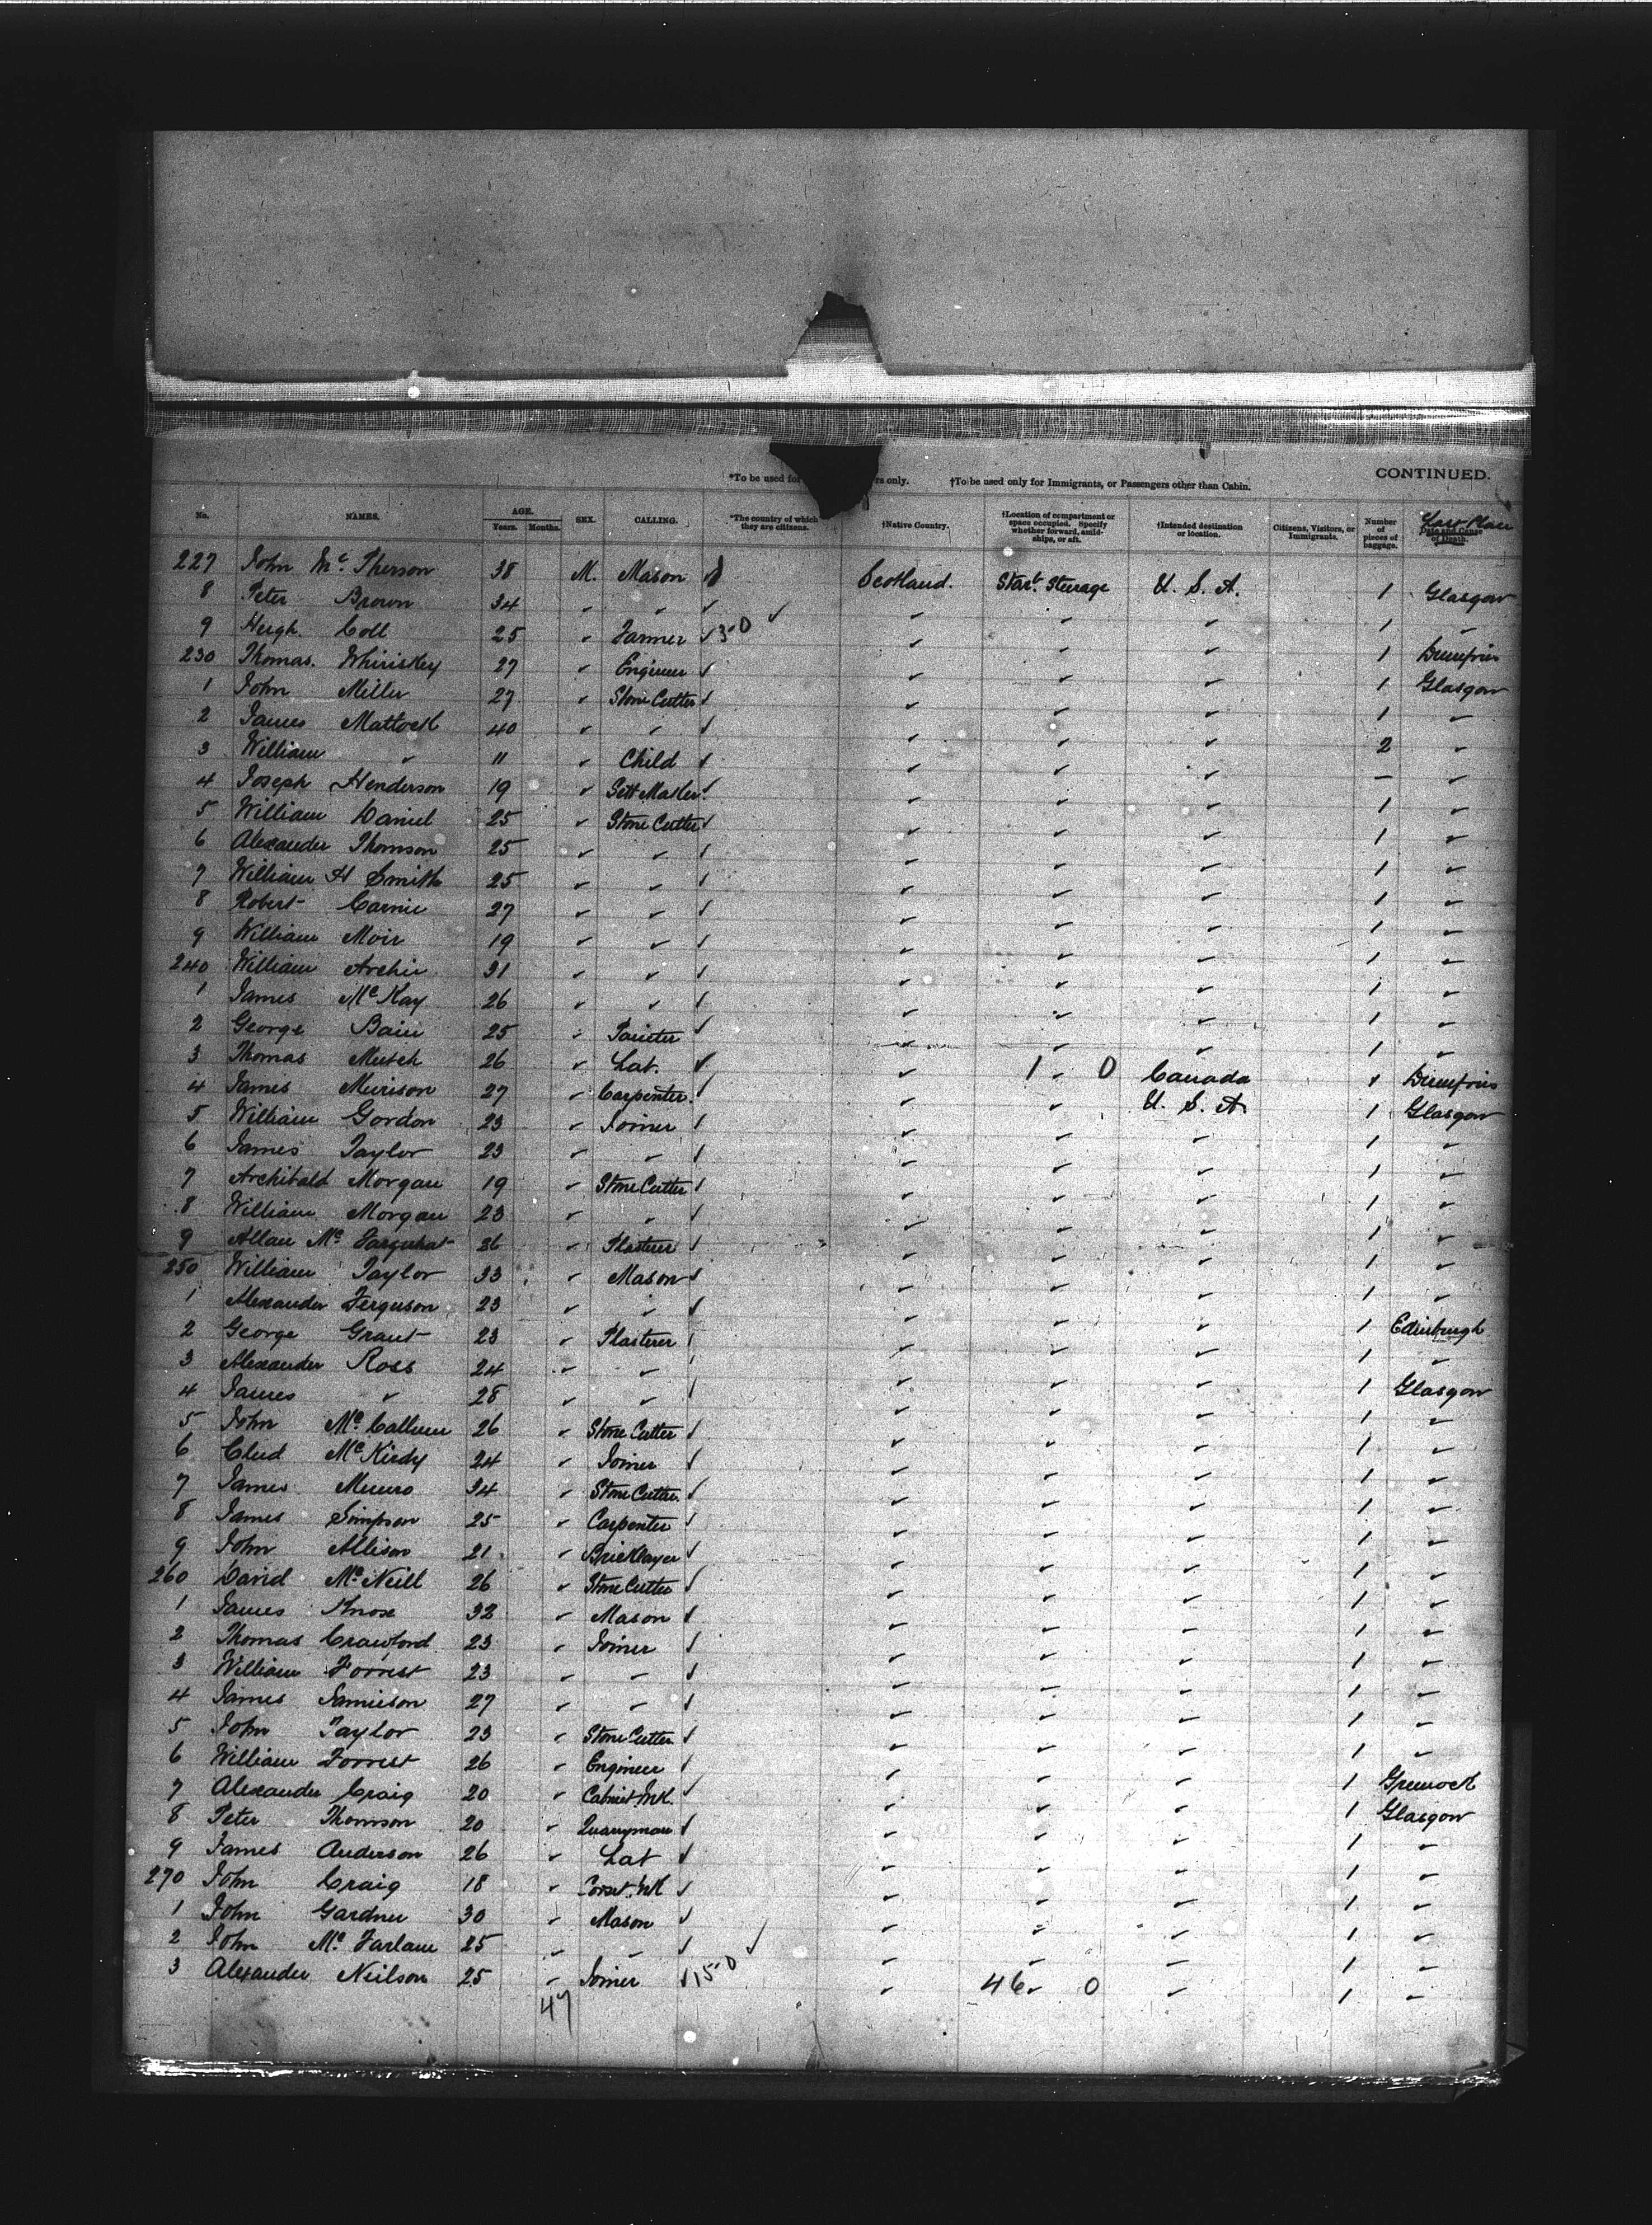 CONTINUED.
*To be used for rs only. †To be used only for Immigrants, or Passengers other than Cabin.
No. NAMES. AGE. Years. Months. SEX. CALLING. *The country of which they are citizens. †Native Country. †Location of compartment or space occupied. Specify whether forward, amidships, or aft. †Intended destination or location. Citizens, Visitors, or Immigrants. Number of pieces of baggage. Last Place Date and Cause of Death.
227 John Mc Pherson 38 M. Mason Scotland. Starb. Steerage U. S. A. 1 Glasgow
8 Peter Brown 34 " " ✓ " " " 1 "
9 Hugh Coll 25 " Farmer ✓ 3-0 " " " 1 Dumfries
230 Thomas Whiriskey 27 " Engineer ✓ " " " 1 Glasgow
1 John Miller 27 " Stone Cutter ✓ " " " 1 "
2 James Mattock 40 " " ✓ " " " 2 "
3 William " 11 " Child ✓ " " " — "
4 Joseph Henderson 19 " Sett Maker ✓ " " " 1 "
5 William Daniel 25 " Stone Cutter ✓ " " " 1 "
6 Alexander Thomson 25 " " ✓ " " " 1 "
7 William H Smith 25 " " ✓ " " " 1 "
8 Robert Carnie 27 " " ✓ " " " 1 "
9 William Moir 19 " " ✓ " " " 1 "
240 William Archie 31 " " ✓ " " " 1 "
1 James McKay 26 " " ✓ " " " 1 "
2 George Bain 25 " Painter ✓ " " " 1 "
3 Thomas Mutch 26 " Lab. ✓ " 1 - 0 Canada Dumfries
4 James Murison 27 " Carpenter ✓ " " U. S. A. 1 Glasgow
5 William Gordon 23 " Joiner ✓ " " " 1 "
6 James Taylor 23 " " ✓ " " " 1 "
7 Archibald Morgan 19 " Stone Cutter ✓ " " " 1 "
8 William Morgan 23 " " ✓ " " " 1 "
9 Allan Mc Farquhat 26 " Plasterer ✓ " " " 1 "
250 William Taylor 33 " Mason ✓ " " " 1 "
1 Alexander Ferguson 23 " " ✓ " " " 1 Edinburgh
2 George Grant 23 " Plasterer ✓ " " " 1 "
3 Alexander Ross 24 " " ✓ " " " 1 Glasgow
4 James " 28 " " ✓ " " " 1 "
5 John McCallum 26 " Stone Cutter ✓ " " " 1 "
6 Clud McKirdy 24 " Joiner ✓ " " " 1 "
7 James Munro 34 " Stone Cutter ✓ " " " 1 "
8 James Simpson 25 " Carpenter ✓ " " " 1 "
9 John Allison 21 " Bricklayer ✓ " " " 1 "
260 David McNeill 26 " Stone Cutter ✓ " " " 1 "
1 James Knox 32 " Mason ✓ " " " 1 "
2 Thomas Crawford 23 " Joiner ✓ " " " 1 "
3 William Forrest 23 " " ✓ " " " 1 "
4 James Jamieson 27 " " ✓ " " " 1 "
5 John Taylor 23 " Stone Cutter ✓ " " " 1 "
6 William Forrest 26 " Engineer ✓ " " " 1 Greenock
7 Alexander Craig 20 " Cabinet Mk. ✓ " " " 1 Glasgow
8 Peter Thomson 20 " Quarryman ✓ " " " 1 "
9 James Anderson 26 " Lab ✓ " " " 1 "
270 John Craig 18 " Corset Mk ✓ " " " 1 "
1 John Gardner 30 " Mason ✓ " " " 1 "
2 John McFarlane 25 " " ✓ " " " 1 "
3 Alexander Neilson 25 " Joiner ✓ 15-0 " 46 - 0 " 1 "
47